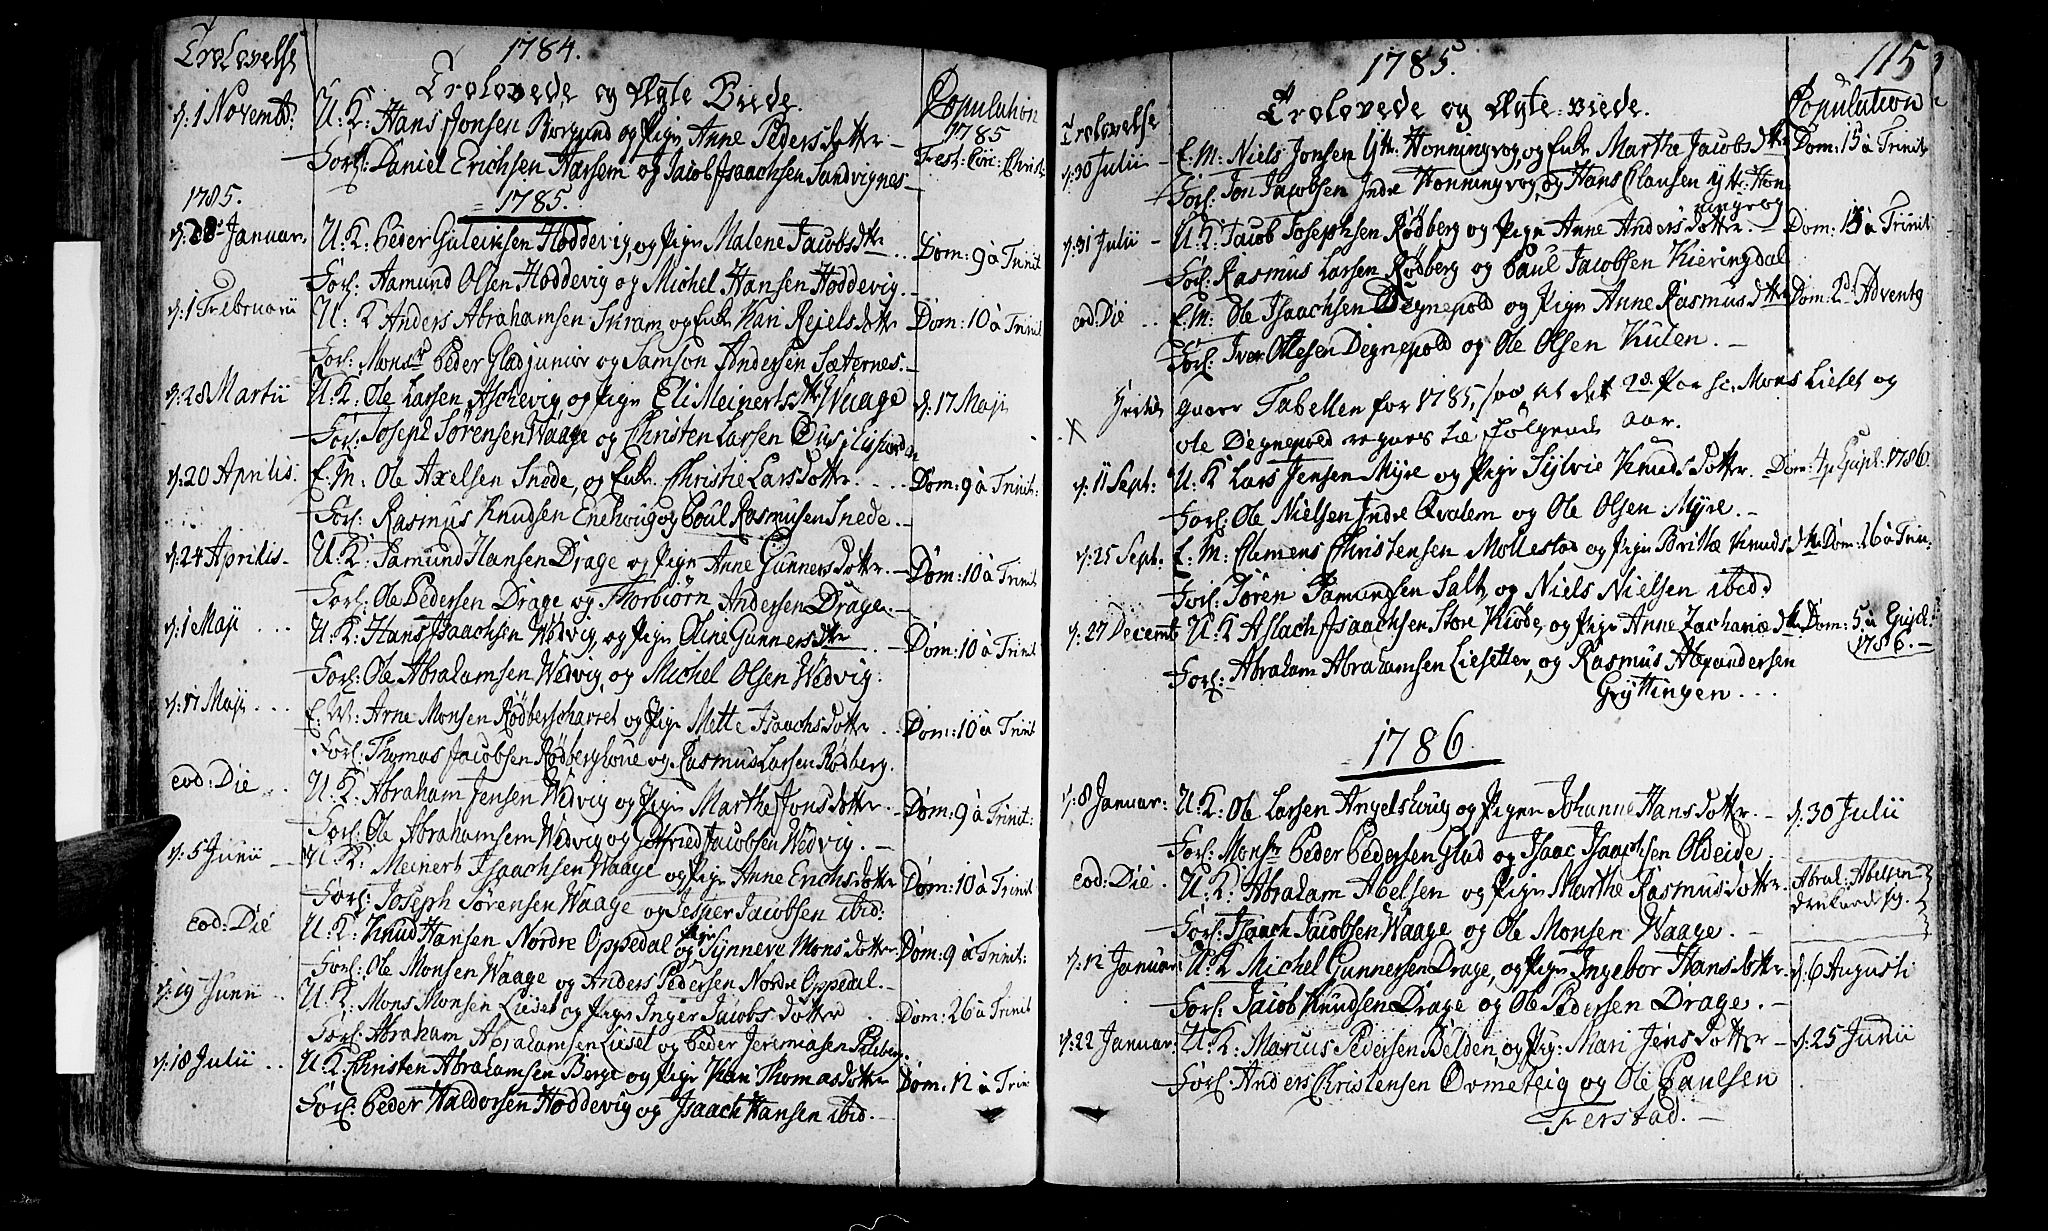 Trolovelse
1784.
Trolovede og Ægte Viede.
Copulation
1785
d: 1 Novembr: U: K: Hans Jonsen Borgund og Pige Anne Pedersdotter – Fest: Circ: Christi
Forl: Daniel Erichsen Harsem og Jacob Isaachsen Sandvignes –
1785.
= 1785.
d: 28 Januar: U. K. Peder Guleiksen Hoddevig, og Pige Malene Jacobsdtr .. Dom: 9 à Trinit
Forl: Aamund Olsen Hoddevig og Michel Hansen Hoddevig. –
d: 1 Februarii U. K Anders Abrahamsen Skram, og Enke Kan Rejelsdotter Dom: 10 à Trinit
Forl: Monsr Peder Glad junior og Samson Andersen Sæternes. –
d: 28 Martii U: K: Ole Larsen Aschevig, og Pige Eli Meinertsdtr Waage d: 17 Maji
Forl: Joseph Sørensen Waage og Christen Larsen
d: 20 Aprilis. E. M. Ole Axelsen Snede, og Enke Christie Larsdotter. . . Dom: 9 à Trinit:
Forl: Rasmus Knudsen Enehoug og Poul Rasmusen Snede. –
d: 24 Aprilis – U. K: Samund Hansen Drage og Pige Anne Gunnersdotter. – Dom: 10 à Trinit
Forl: Ole Pedersen Drage, og Thorbiørn Andersen Drage. –
d: 1 Maji . . . U: K: Hans Isaachsen Wedvig, og Pige Oline Gunnersdtr .. Dom: 10 à Trinit
Forl: Ole Abrahamsen Wedvig, og Michel Olsen Wedvig.
d: 17 Maji . . . E. M: Arne Monsen Rødbergscharret og Pige Mette Isaachsdotter . . Dom: 10 à Trinit
Forl: Thomas Jacobsen Rødberghoue og Rasmus Larsen Rødberg.
eod: Die . . U. K: Abraham Jensen Wedvig og Pige Marthe Jonsdotter. Dom: 9 à Trinit:
Forl: Ole Abrahamsen Wedvig og Gotfried Jacobsen Wedvig. –
d: 5 Junii – U K: Meinert Isaachsen Waage og Pige Anne Erichsdotter Dom: 10 à Trinit
Forl: Joseph Sørensen Waage og Jesper Jacobsen ibid:
eod: Die U: K: Knud Hansen Nordre Oppedal og Pige Synneve Monsdotter Dom: 9 à Trinit:
Forl: Ole Monsen Waage og Anders Pedersen Nordre Oppedal. –
d: 19 Junii . . U. K: Mons Monsen Lieset og Pige Inger Jacobsdotter . Dom: 26 à Trinit
Forl: Abraham Abrahamsen Lieset og Peder Jeremiasen
d: 18 Julii . . U. K: Christen Abrahamsen Berge og Pige Kan Thomasdotter Dom: 12 à Trin
Forl: Peder Haldorsen Hoddevig og Isaach Hansen ibid. –
115
1785.
Trolovelse
Trolovede og Ægte-viede.
Copulation
d: 30 Julii E. M: Niels Jonsen Ytr: Honningvog, og Enke Marthe Jacobsdtr Dom: 15 à Trinit
Forl: Jon Jacobsen Indre Honningvog, og Hans Clausen Ytr: Hon
ningvog
d: 31 Julii – U. K: Jacob Josephsen Rødberg og Pige Anne Andersdotter. – Dom: 15 à Trinit
Forl: Rasmus Larsen Rødberg og Paul Jacobsen Kieringdal
eod: Die . . E. M: Ole Isaachsen Degnepold og Pige Anne Rasmusdtr Dom: 2d Adventg
Forl: Iver Ottesen Degnepold og Ole Olsen Kulen. –
X Hertil gaaer Tabellen for 1785, saa at det 2de Par sc: Mons Lieset og
Ole Degnepold regnes til følgende Aar.
d: 11 Sept: U. K Lars Jensen Myre og Pige Sylvie Knudsdotter. Dom: 4 p Epiph: 1786.
Forl: Ole Nielsen Indre Qvalem og Ole Olsen Myre. –
d: 25 Sept: E. M: Clemens Christensen Mollestad og Pige Brithe Knudsdtr Dom: 26 à Trin:
Forl: Søren Samundsen Salt, og Niels Nielsen ibid.
d: 27 Decembr U: K Aslach Isaachsen Store Kiøde, og Pige Anne Zachariædtr Dom: 5 à Epiph:
1786. –
Forl: Abraham Abrahamsen Liesetter, og Rasmus Alexandersen
Gryttingen . . .
= 1786.
d: 8 Januar: U: K: Ole Larsen Angelshoug og Pigen Johanne Hansdotter. – d: 30 Julii
Forl: Monsr Peder Pedersen Glad og Isaac Isaachsen Oldeide –
eod: Die . U. K: Abraham Abelsen og Pige Marthe Rasmusdotter. Abrah: Abelsen
druknede
Forl: Isaach Jacobsen Waage og Ole Monsen Waage. –
d: 12 Januar: U. K. Michel Gunnersen Drage, og Pige Ingebor Hansdotter d: 6 Augusti
Forl: Jacob Knudsen Drage og Ole Pedersen Drage. –
d: 22 Januar: U: K: Marius Pedersen Belden, og Pig: Mari Jensdotter – d: 25 Junii
Forl: Anders Christensen Ormeteig og Ole Paulsen
Ferstad. –